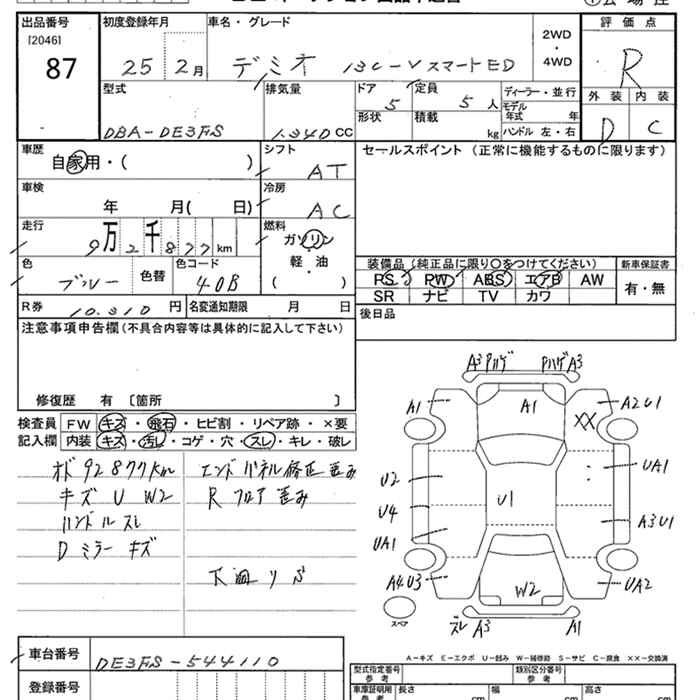 出品番号
[2046]
87
初度登録年月
25 2月
車名・グレード
デミオ 13C-V スマートED
2WD
・
4WD
評価点
R
外装 内装
D C
型式
DBA-DE3FS
排気量
1.340 CC
ドア
5
定員
5 人
形状
積載
kg
ディーラー・並行
モデル
年式 年
ハンドル 左・右
車歴
自家用・( )
シフト
AT
車検
年 月( 日)
冷房
AC
走行
9万2千877km
燃料
ガソリン
軽・油
( )
色
ブルー
色替
色コード
40B
R券
10.310 円
名変通知期限 月 日
セールスポイント (正常に機能するものに限ります)
装備品 (純正品に限り〇をつけてください)
新車保証書
PS PW ABS エアB AW
SR ナビ TV カワ
有・無
後日品
注意事項申告欄(不具合内容等は具体的に記入して下さい)
修復歴 有 [箇所 ]
検査員
記入欄
FW キズ・飛石・ヒビ割・リペア跡・×要
内装 キズ・汚レ・コゲ・穴・スレ・キレ・破レ
オド 92877km
キズ U W2
ハンドルスレ
D ミラー キズ
エンドパネル修正歪み
R フロア 歪み
下廻りS
A3 Pハゲ
PハゲA3
A1
A1
XX
A2U1
U2
UA1
U4
U1
A3U1
UA1
A4U3
W2
UA2
スペア
ズレ A3
A1
A-キズ E-エクボ U-凹み W-補修跡 S-サビ C-腐食 ××-交換済
車台番号
DE3FS-544110
登録番号
型式指定番号
参考
類別区分番号
参考
車庫証明用
参考
長さ cm
幅 cm
高さ cm